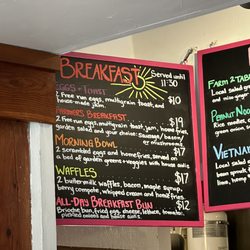 BREAKFAST
Served until
11:30
EGGS + TOAST
2 free run eggs, multigrain toast, and
house-made jam. $10
FARMERS BREAKFAST $19
2 free run eggs, multigrain toast, jam, home fries,
garden salad and your choice: Sausage/bacon/
or mushrooms
MORNING BOWL $17
2 scrambled eggs and homefries, served on
a bed of garden greens + veggies with house aioli
WAFFLES $17
2 buttermilk waffles, bacon, maple syrup,
berry compote, whipped cream and home fries
ALL-DAY BREAKFAST BUN $12
Brioche bun, fried egg, cheese, lettuce, tomato,
pickled onions and house aioli
FARM 2 TABL
Local salad
and
PEANUT NOO
Rice
VIETNAM
Local